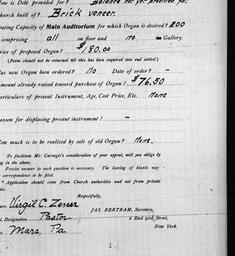 w is Debt provided for? Balance her yer provided for.
hurch built of? Brick veneer.
eating Capacity of Main Auditorium for which Organ is desired? 200
comprising all on floor and no in Gallery.
rice of proposed Organ? $180.00
(Form should not be returned till this has been enquired into and settled.)
as new Organ been ordered? no Date of order? -
mount already raised toward purchase of Organ? $76.50
articulars of present Instrument, Age, Cost Price, Etc. None
eason for displacing present instrument? -
ow much is to be realized by sale of old Organ? None.
To facilitate Mr. Carnegie's consideration of your appeal, will you oblige by
ing in the above.
Precise answer to each question is necessary. The leaving of blanks may
correspondence to be filed.
Application should come from Church authorities and not from private
Virgil C. Zener
JAS. BERTRAM, Secretary,
Designation Pastor
2 East 91st Street,
Mars, Pa
New York.